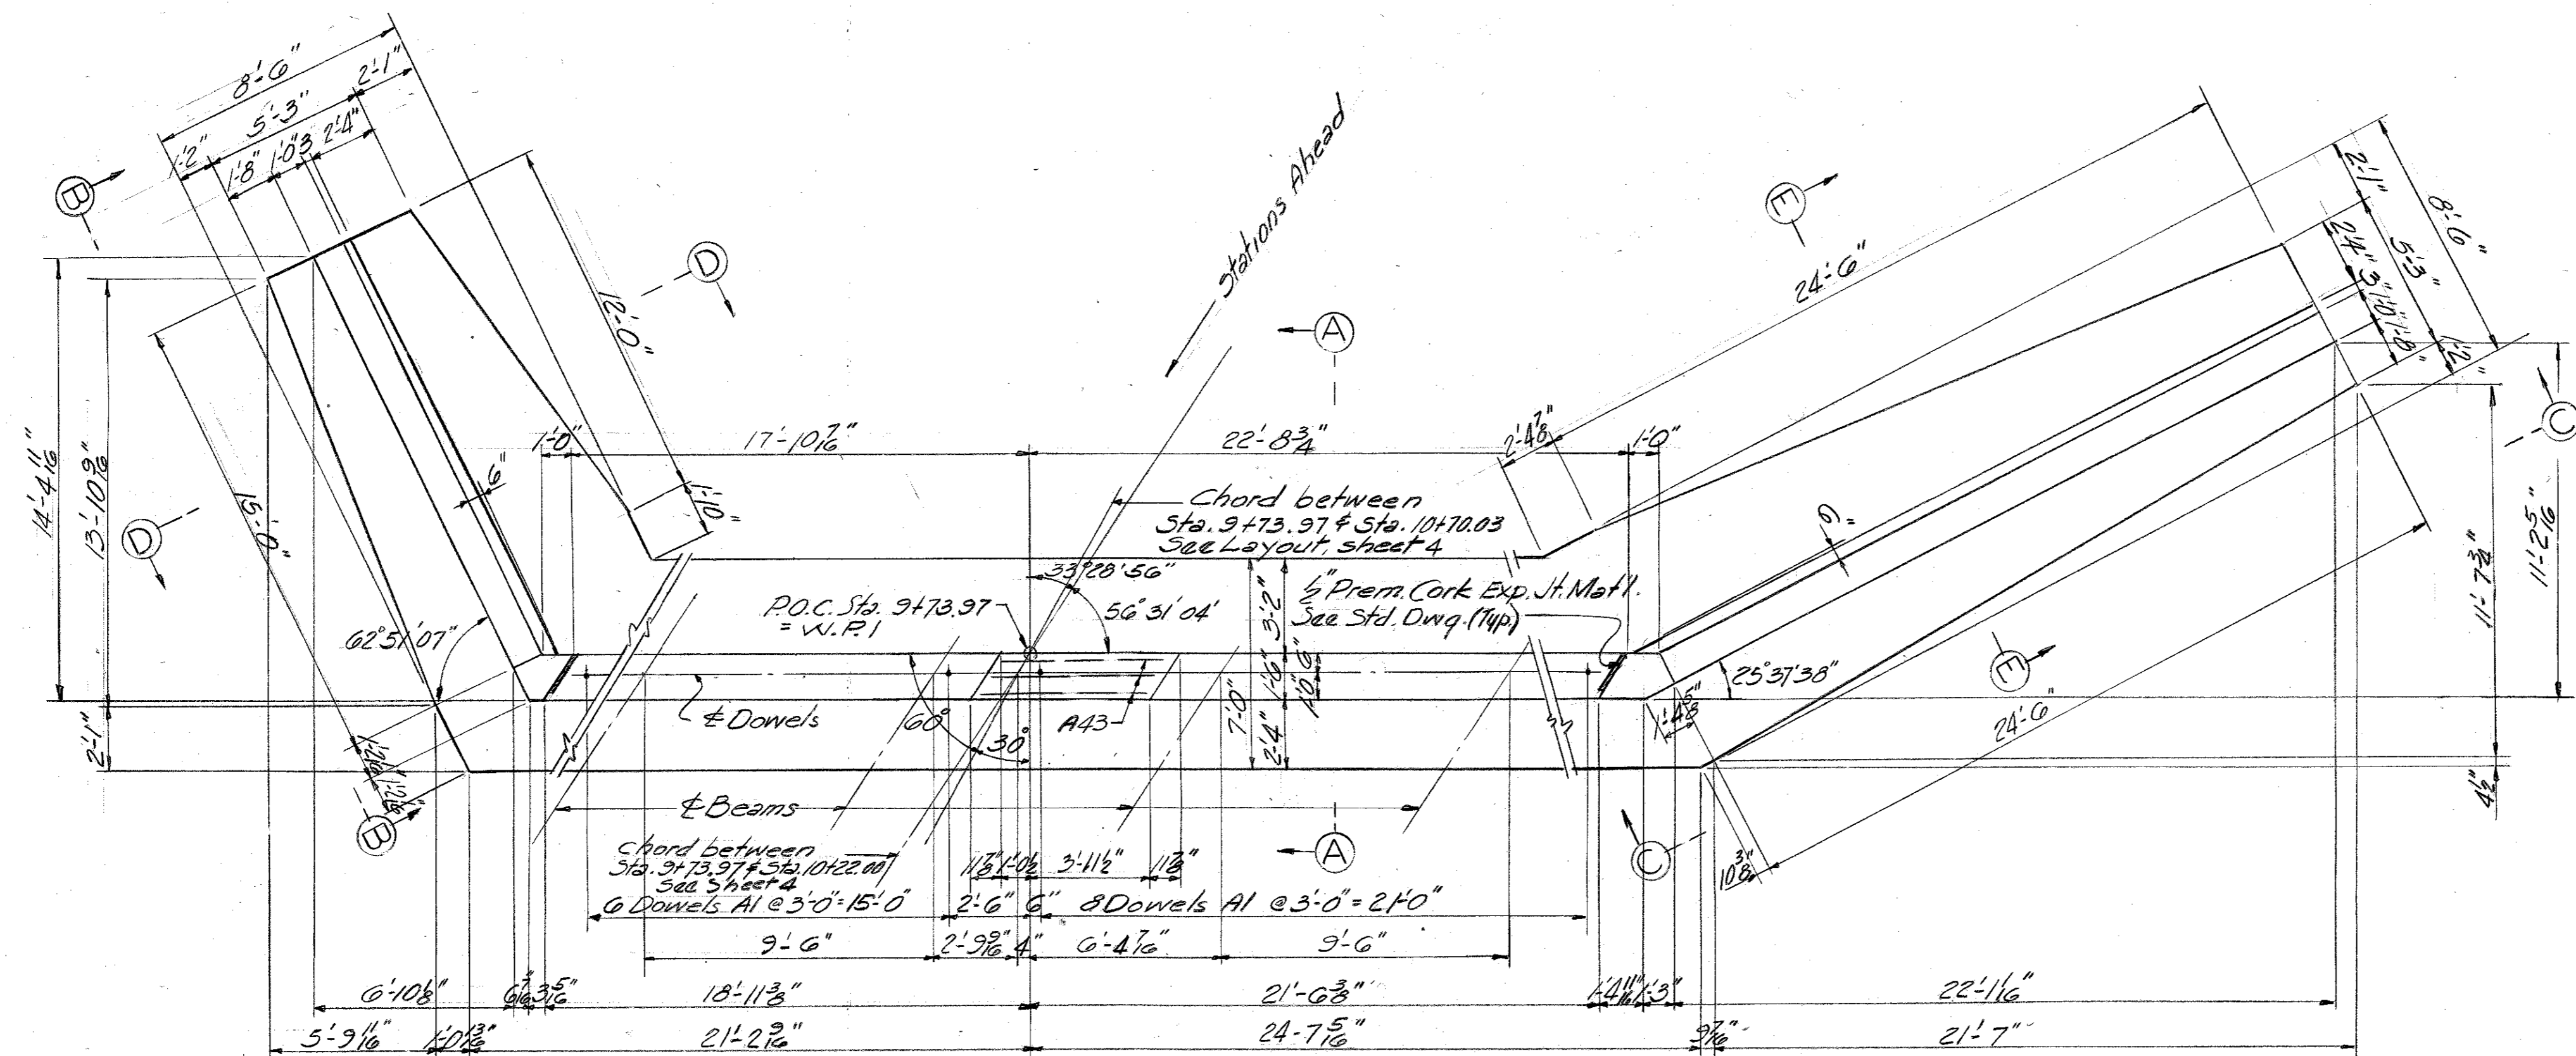 8'-6"
5'-3"
2'-1"
1'-2"
1'-8"
1'-0"
3
2'-4"
B
D
12'-0"
Stations Ahead
E
24'-6"
2'-1"
8'-6"
5'-3"
2'-4"
3"
1'-0"
1'-8"
1'-2"
A
C
14'-4 11/16"
13'-10 9/16"
15'-0"
D
6"
1'-0"
17'-10 7/16"
22'-8 3/4"
2'-4 7/8"
1'-0"
1'-0"
Chord between
Sta. 9+73.97 & Sta. 10+70.03
See Layout, sheet 4
6"
11'-7 3/4"
11'-2 5/16"
33°28'56"
P.O.C. Sta. 9+73.97
= W.P. 1
56°31'04'
1/2" Prem. Cork Exp. Jt. Mat'l.
See Std. Dwg. (Typ.)
62°51'07"
3'-2"
1'-6"
6"
1'-0"
7'-0"
2'-4"
25°37'38"
E
℄ Dowels
60°
30°
A43
1'-4 5/8"
24'-6"
2'-1"
1'-2 1/16"
B
℄ Beams
4 1/2"
Chord between
Sta. 9+73.97 & Sta. 10+22.00
See Sheet 4
11 7/8"
1'-0 1/2
3'-11 1/2"
11 7/8"
A
C
10 3/8"
6 Dowels A1 @ 3'-0" = 15'-0"
2'-6"
6"
8 Dowels A1 @ 3'-0" = 21'-0"
9'-6"
2'-9 9/16
4"
6'-4 7/16"
9'-6"
6'-10 1/8"
6 7/16"
3 5/16"
18'-11 3/8"
21'-6 3/8"
1'-4 11/16"
1'-3"
22'-1 1/16"
5'-9 11/16"
1'-0 13/16"
21'-2 9/16"
24-7 5/16"
9 7/16"
21'-7"